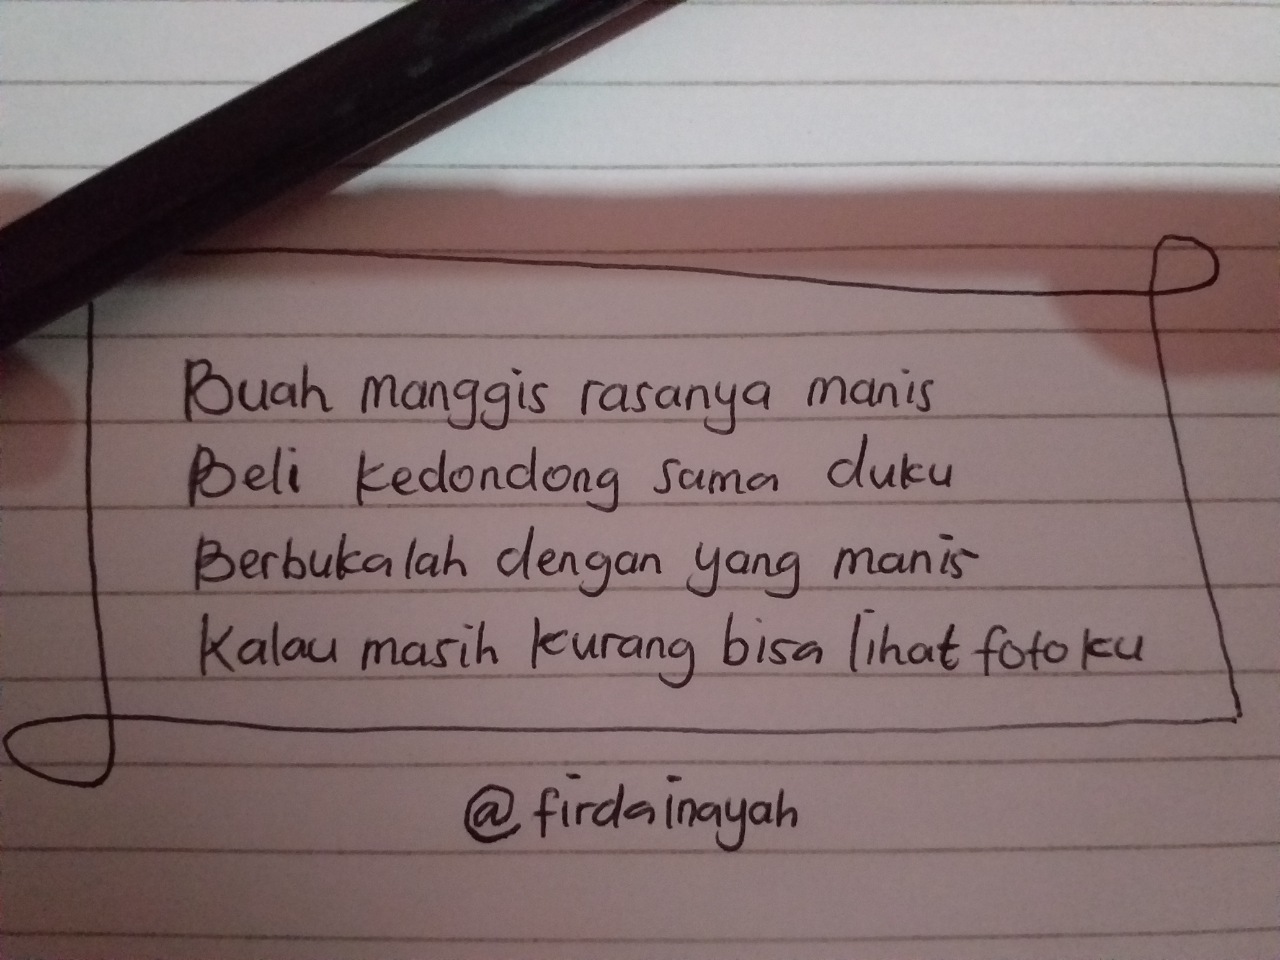 Buah manggis rasanya manis
Beli kedondong sama duku
Berbukalah dengan yang manis
Kalau masih kurang bisa lihat fotoku
@firdainayah